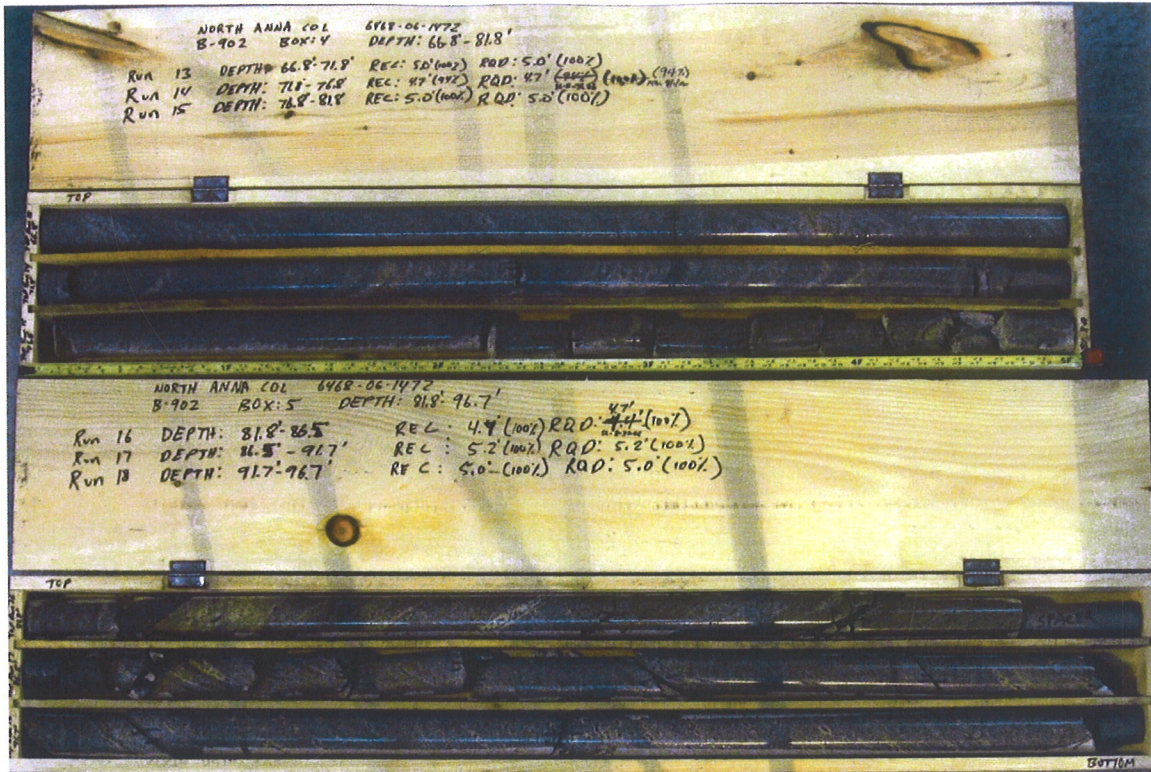 NORTH ANNA COL 6468-06-1472
B-902 BOX: 4 DEPTH: 66.8'-81.8'
Run 13 DEPTH: 66.8'-71.8' REC: 5.0'(100%) RQD: 5.0'(100%)
Run 14 DEPTH: 71.8'-76.8' REC: 4.7'(94%) RQD: 4.7' (100%) (94%)
Run 15 DEPTH: 76.8'-81.8' REC: 5.0'(100%) RQD: 5.0'(100%)
TOP
1F 2F 3F 4F 5F
NORTH ANNA COL 6468-06-1472
B-902 BOX: 5 DEPTH: 81.8'-96.7'
4.7'
Run 16 DEPTH: 81.8'-86.5' REC: 4.7'(100%) RQD: 4.4' (100%)
Run 17 DEPTH: 86.5'-91.7' REC: 5.2'(100%) RQD: 5.2'(100%)
Run 18 DEPTH: 91.7'-96.7' REC: 5.0'(100%) RQD: 5.0'(100%)
TOP
BOTTOM